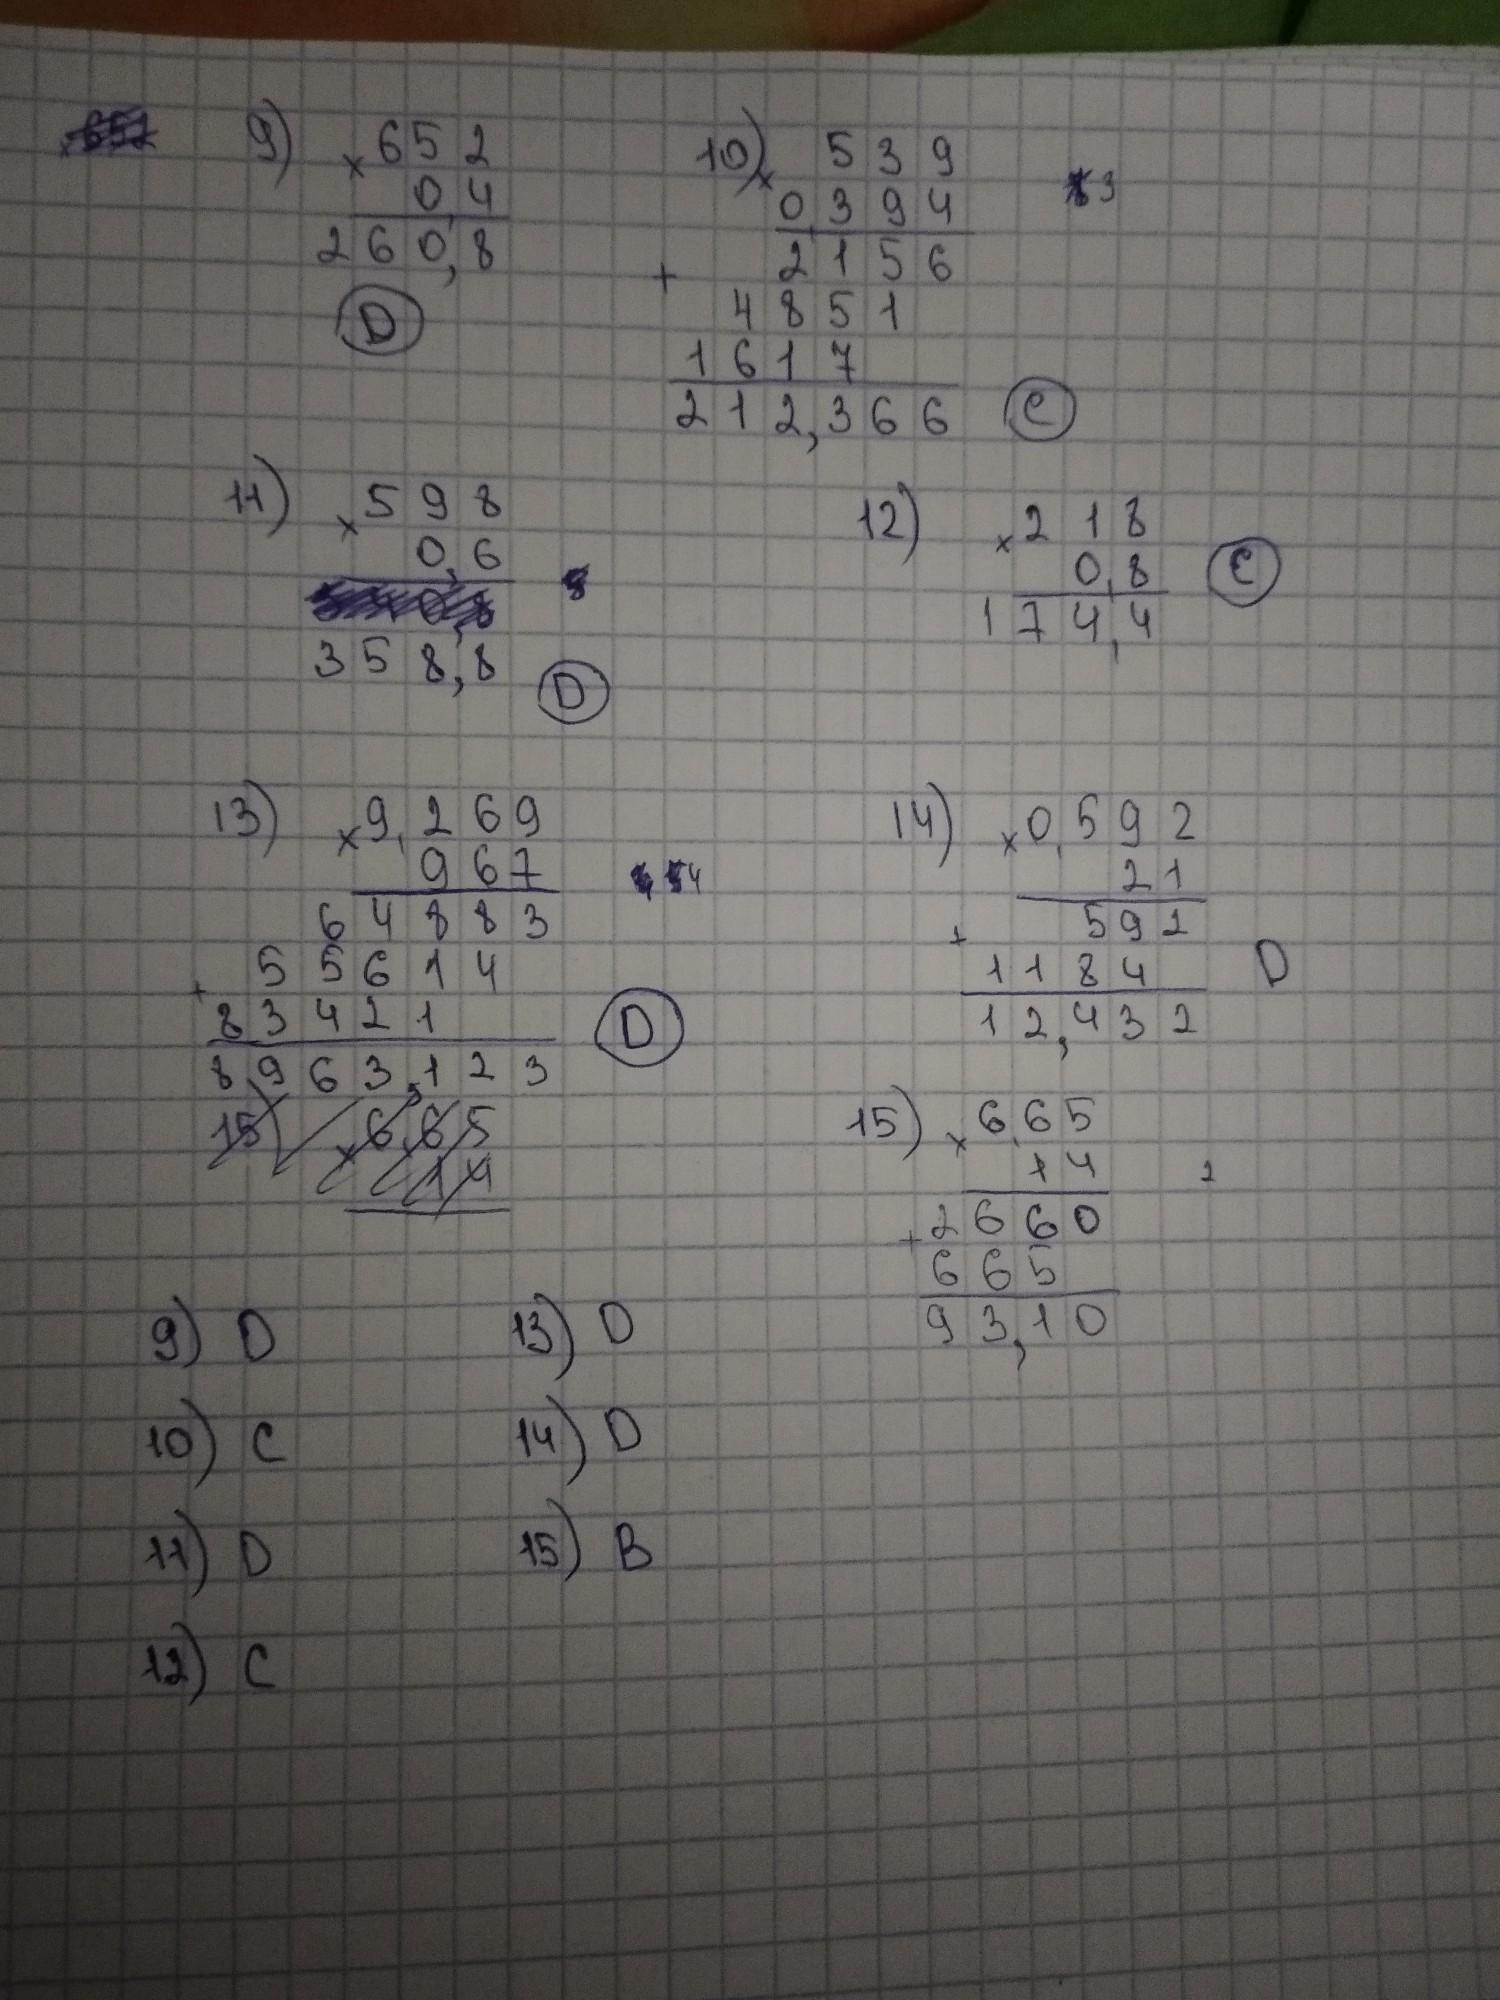 9) × 652
0,4
260,8
D
10) × 539
0,394
2156
+ 4851
1617
212,366 C
3
11) × 598
0,6
358,8
D
12) × 218
0,8 C
174,4
13) × 9,269
967
4
64883
+ 55614
83421
8963,123
D
14) × 0,592
21
+ 592
1184 D
12,432
15) × 6,65
14
15) × 6,65
14 2
+ 2660
665
93,10
9) D
10) C
11) D
12) C
13) D
14) D
15) B